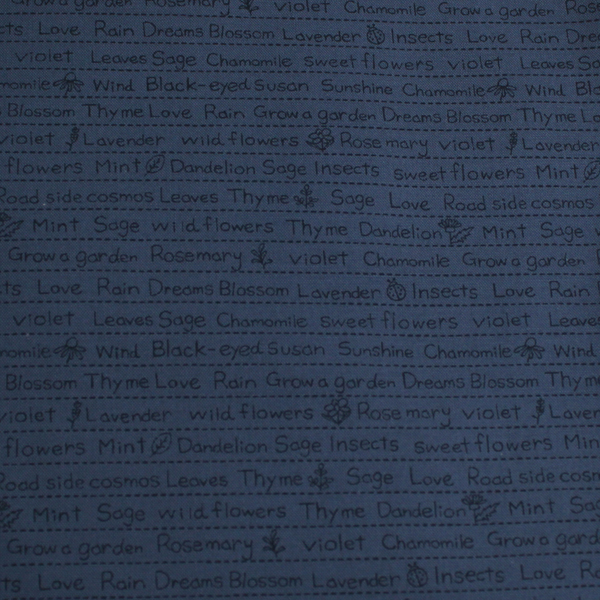 Grow a garden Rosemary violet Chamomile Grow a garden Rose
ts Love Rain Dreams Blossom Lavender Insects Love Rain Dre
violet Leaves Sage Chamomile sweet flowers violet Leaves Sa
momile Wind Black-eyed Susan Sunshine Chamomile Wind Bla
Blossom Thyme Love Rain Grow a garden Dreams Blossom Thyme Lo
violet Lavender wild flowers Rosemary violet Lavender
flowers Mint Dandelion Sage Insects sweet flowers Mint
Road side cosmos Leaves Thyme Sage Love Road side cosmos
Mint Sage wild flowers Thyme Dandelion Mint Sage w
Grow a garden Rosemary violet Chamomile Grow a garden
ts Love Rain Dreams Blossom Lavender Insects Love Rain
violet Leaves Sage Chamomile sweet flowers violet Leaves
momile Wind Black-eyed Susan Sunshine Chamomile Wind
Blossom Thyme Love Rain Grow a garden Dreams Blossom Thyme
violet Lavender wild flowers Rosemary violet Laven
flowers Mint Dandelion Sage Insects sweet flowers Min
Road side cosmos Leaves Thyme Sage Love Road side cosm
Mint Sage wild flowers Thyme Dandelion Mint Sag
Grow a garden Rosemary violet Chamomile Grow a gard
ts Love Rain Dreams Blossom Lavender Insects Love Ra